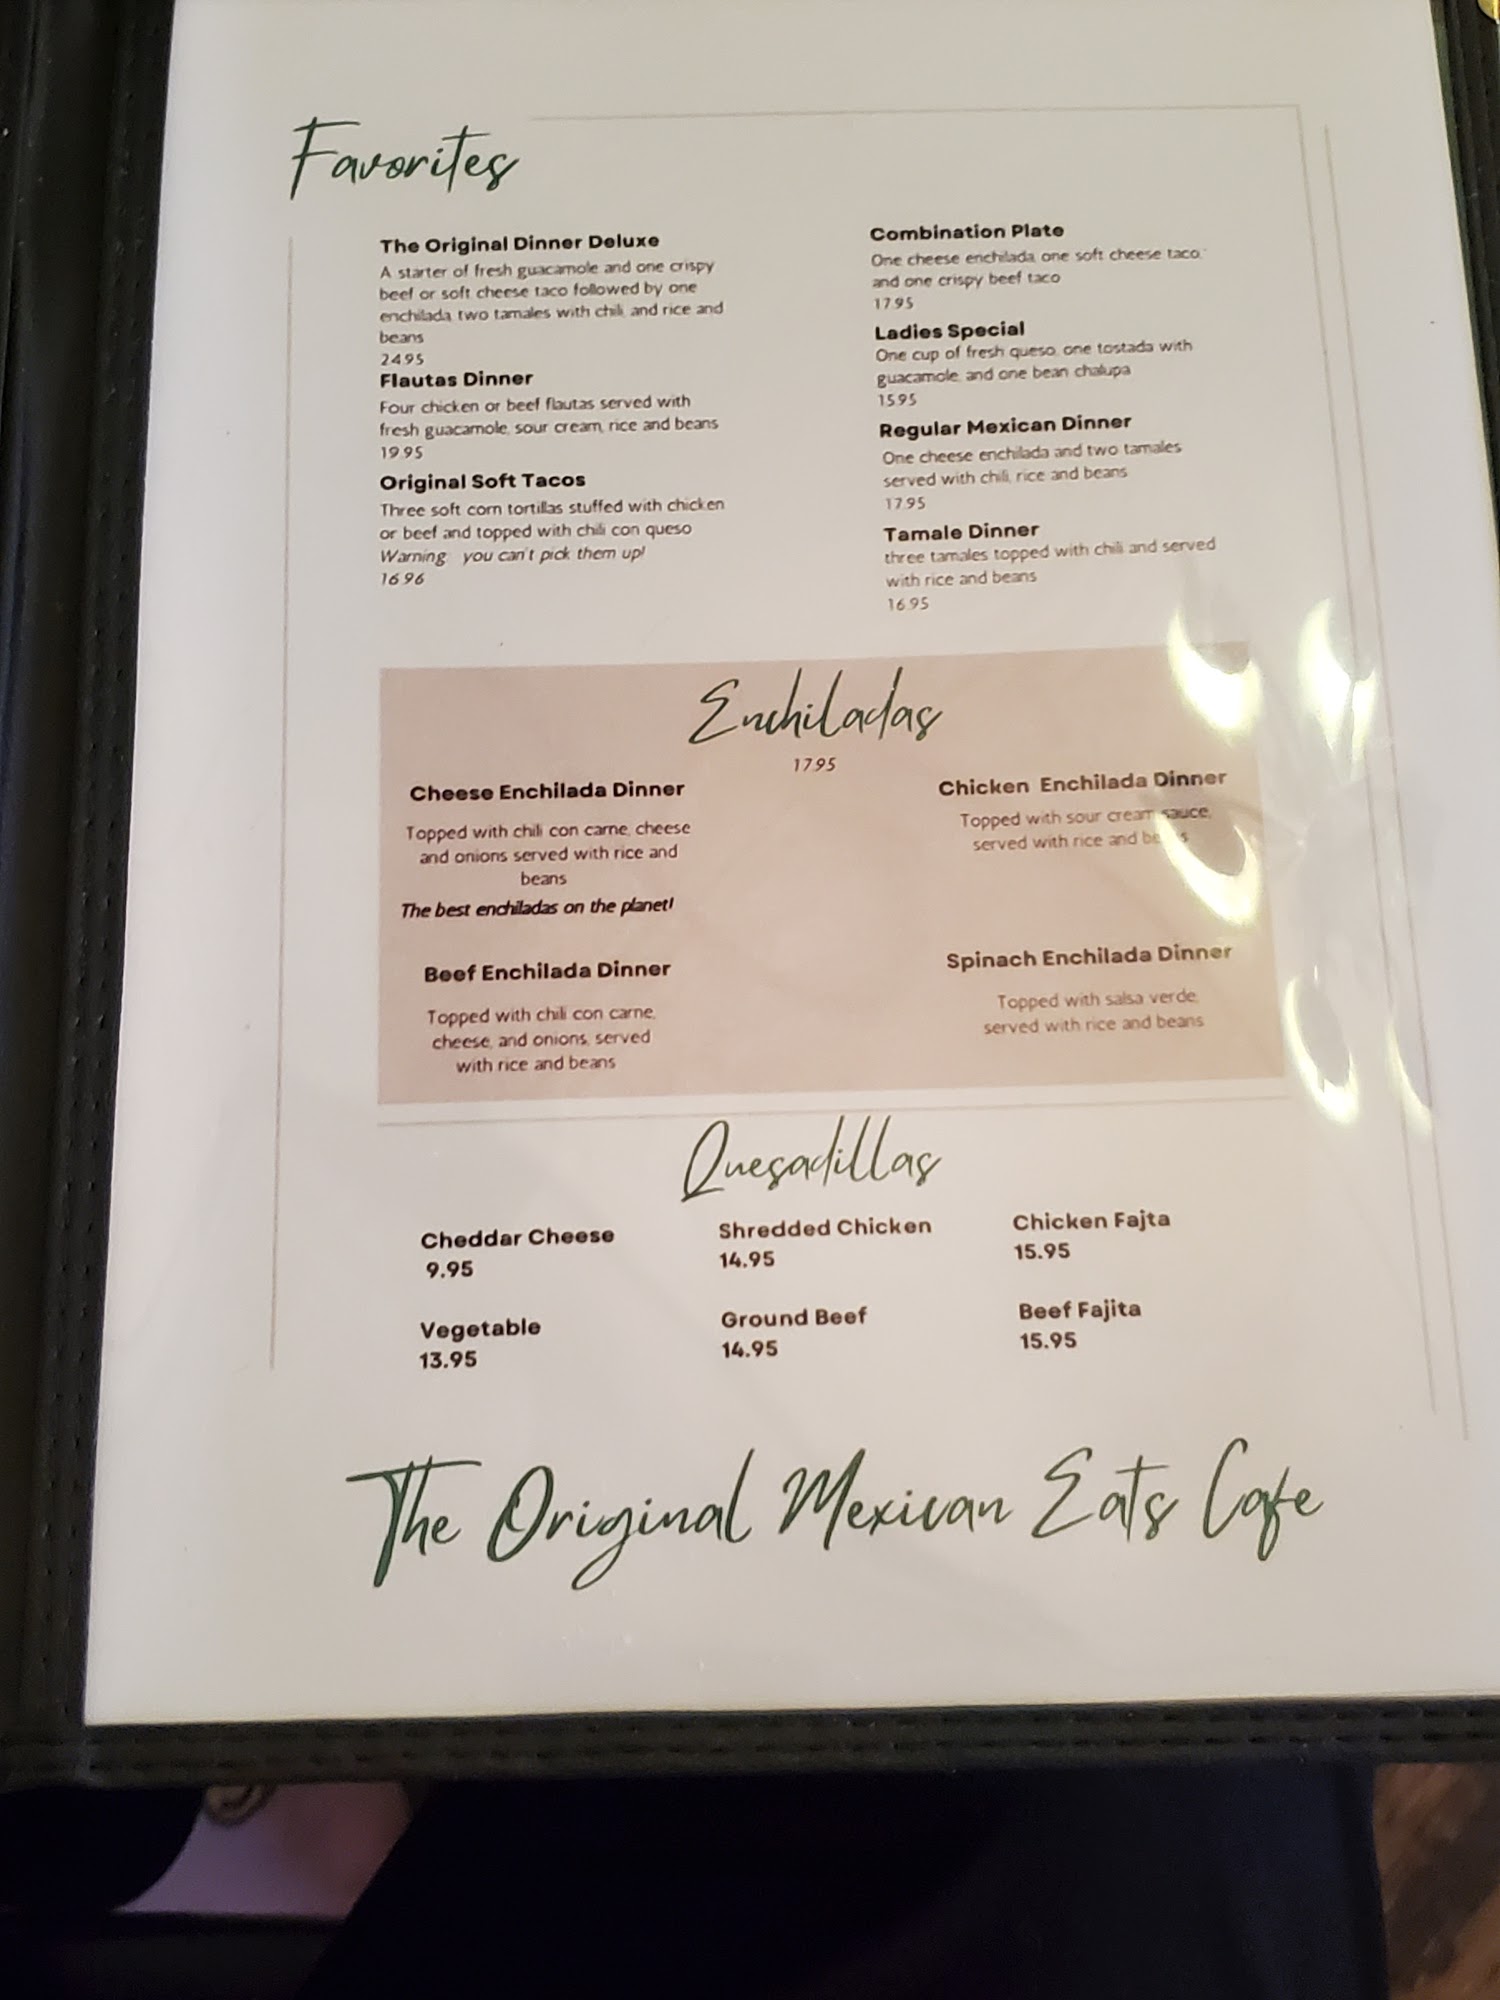 Favorites
The Original Dinner Deluxe
A starter of fresh guacamole and one crispy
beef or soft cheese taco followed by one
enchilada, two tamales with chili, and rice and
beans
24.95
Flautas Dinner
Four chicken or beef flautas served with
fresh guacamole, sour cream, rice and beans
19.95
Original Soft Tacos
Three soft corn tortillas stuffed with chicken
or beef and topped with chili con queso
Warning: you can't pick them up!
16.96
Combination Plate
One cheese enchilada, one soft cheese taco,
and one crispy beef taco
17.95
Ladies Special
One cup of fresh queso, one tostada with
guacamole, and one bean chalupa
15.95
Regular Mexican Dinner
One cheese enchilada and two tamales
served with chili, rice and beans
17.95
Tamale Dinner
three tamales topped with chili and served
with rice and beans
16.95
Enchiladas
17.95
Cheese Enchilada Dinner
Topped with chili con carne, cheese
and onions served with rice and
beans
The best enchiladas on the planet!
Beef Enchilada Dinner
Topped with chili con carne,
cheese, and onions, served
with rice and beans
Chicken Enchilada Dinner
Topped with sour cream sauce,
served with rice and beans
Spinach Enchilada Dinner
Topped with salsa verde,
served with rice and beans
Quesadillas
Cheddar Cheese
9.95
Shredded Chicken
14.95
Chicken Fajta
15.95
Vegetable
13.95
Ground Beef
14.95
Beef Fajita
15.95
The Original Mexican Eats Cafe